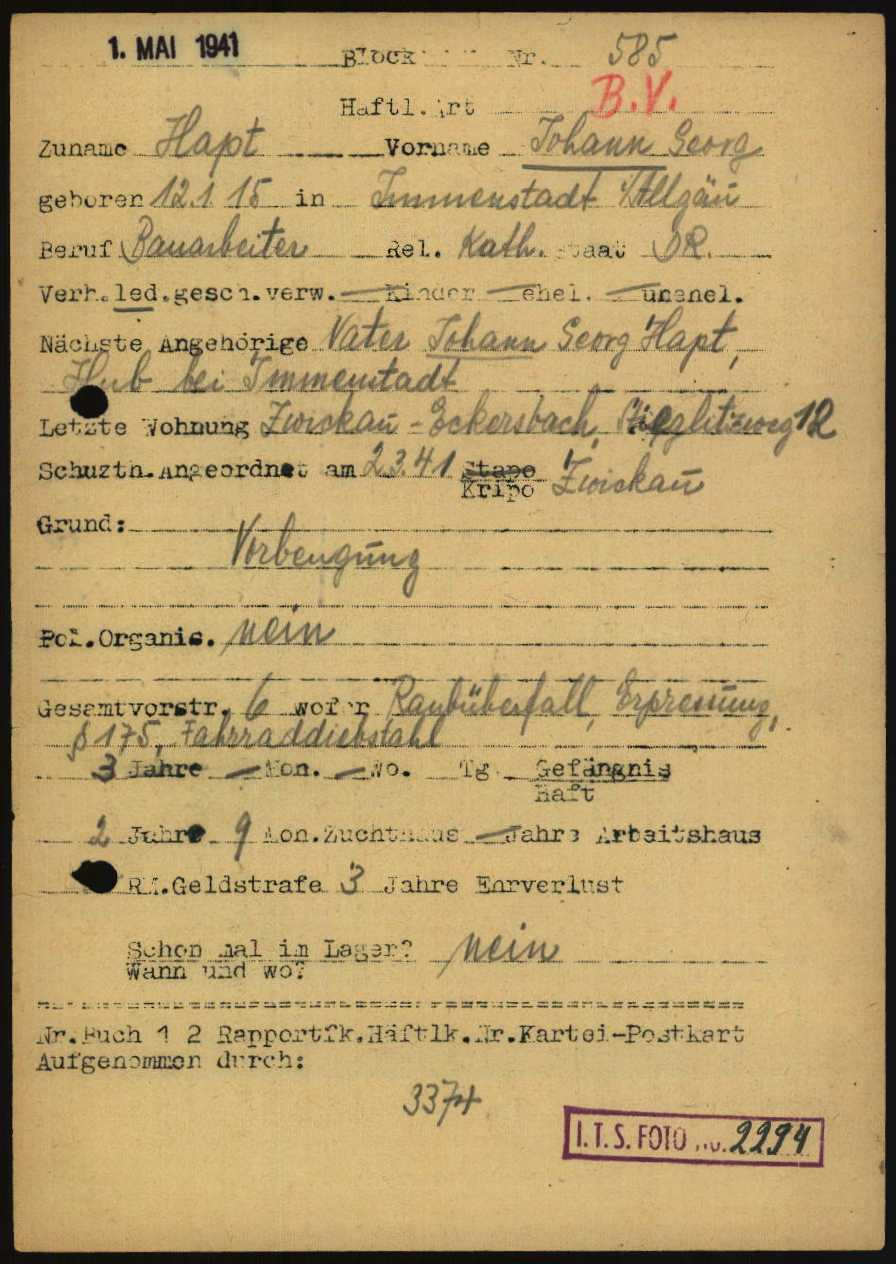 1. MAI 1941 Block Nr. 585
Haftl.Art B.V.
Zuname Hapt Vorname Johann Georg
geboren 12.1.15 in Immenstadt i/Allgäu
Beruf Bauarbeiter Rel. Kath. Staat DR.
Verh.led.gesch.verw. Kinder ehel. unehel.
Nächste Angehörige Vater Johann Georg Hapt,
Hub bei Immenstadt
Letzte Wohnung Zwickau-Eckersbach, 12
Schuzth.Angeordnet am 2.3.41 Stapo
Kripo Zwickau
Grund:
Vorbeugung
Pol.Organis. nein
Gesamtvorstr. 6 wofer Raubüberfall, Erpressung,
§ 175, Fahrraddiebstahl
3 Jahre Mon. Wo. Tg. Gefängnis
Haft
2 Jahre 9 Mon.Zuchthaus Jahre Arbeitshaus
RM.Geldstrafe 3 Jahre Ehrverlust
Schon mal im Lager? nein
Wann und wo?
Nr.Buch 1 2 Rapportfk.Häftlk.Nr.Kartei-Postkart
Aufgenommen durch:
3374
I.T.S. FOTO No. 2294